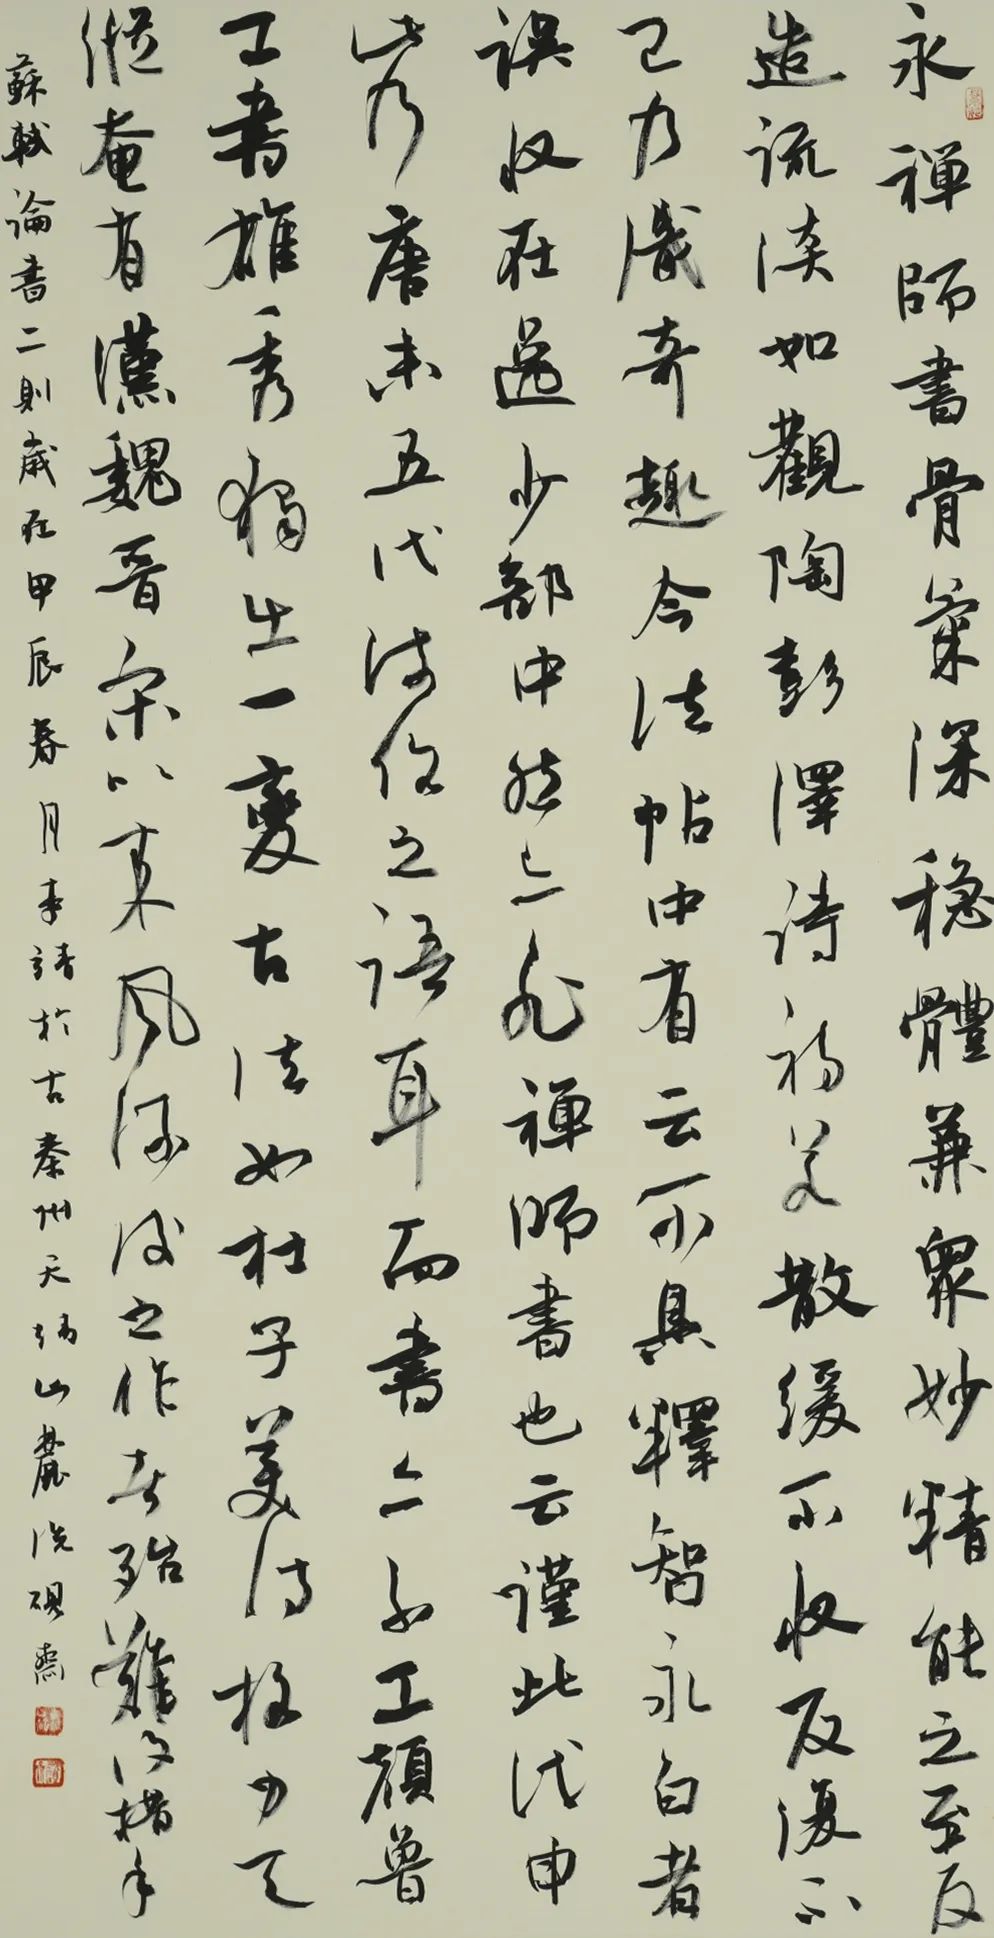 永禅師書骨氣深穏體兼眾妙精能之至反
造疏淡如觀陶彭澤詩初若散緩不收反復不
已乃識奇趣今法帖中有云不具釋智永白者
誤收在逸少部中然亦非禅師書也云謹此代申
此乃唐末五代流俗之語耳而書亦不工顏魯
工書雄秀獨出一變古法如杜子美詩格力天
縱奄有漢魏晉宋以來風流後之作者殆難復措手
蘇軾論書二則歲在甲辰春月李靖於古秦州天靖山麓洗硯齋